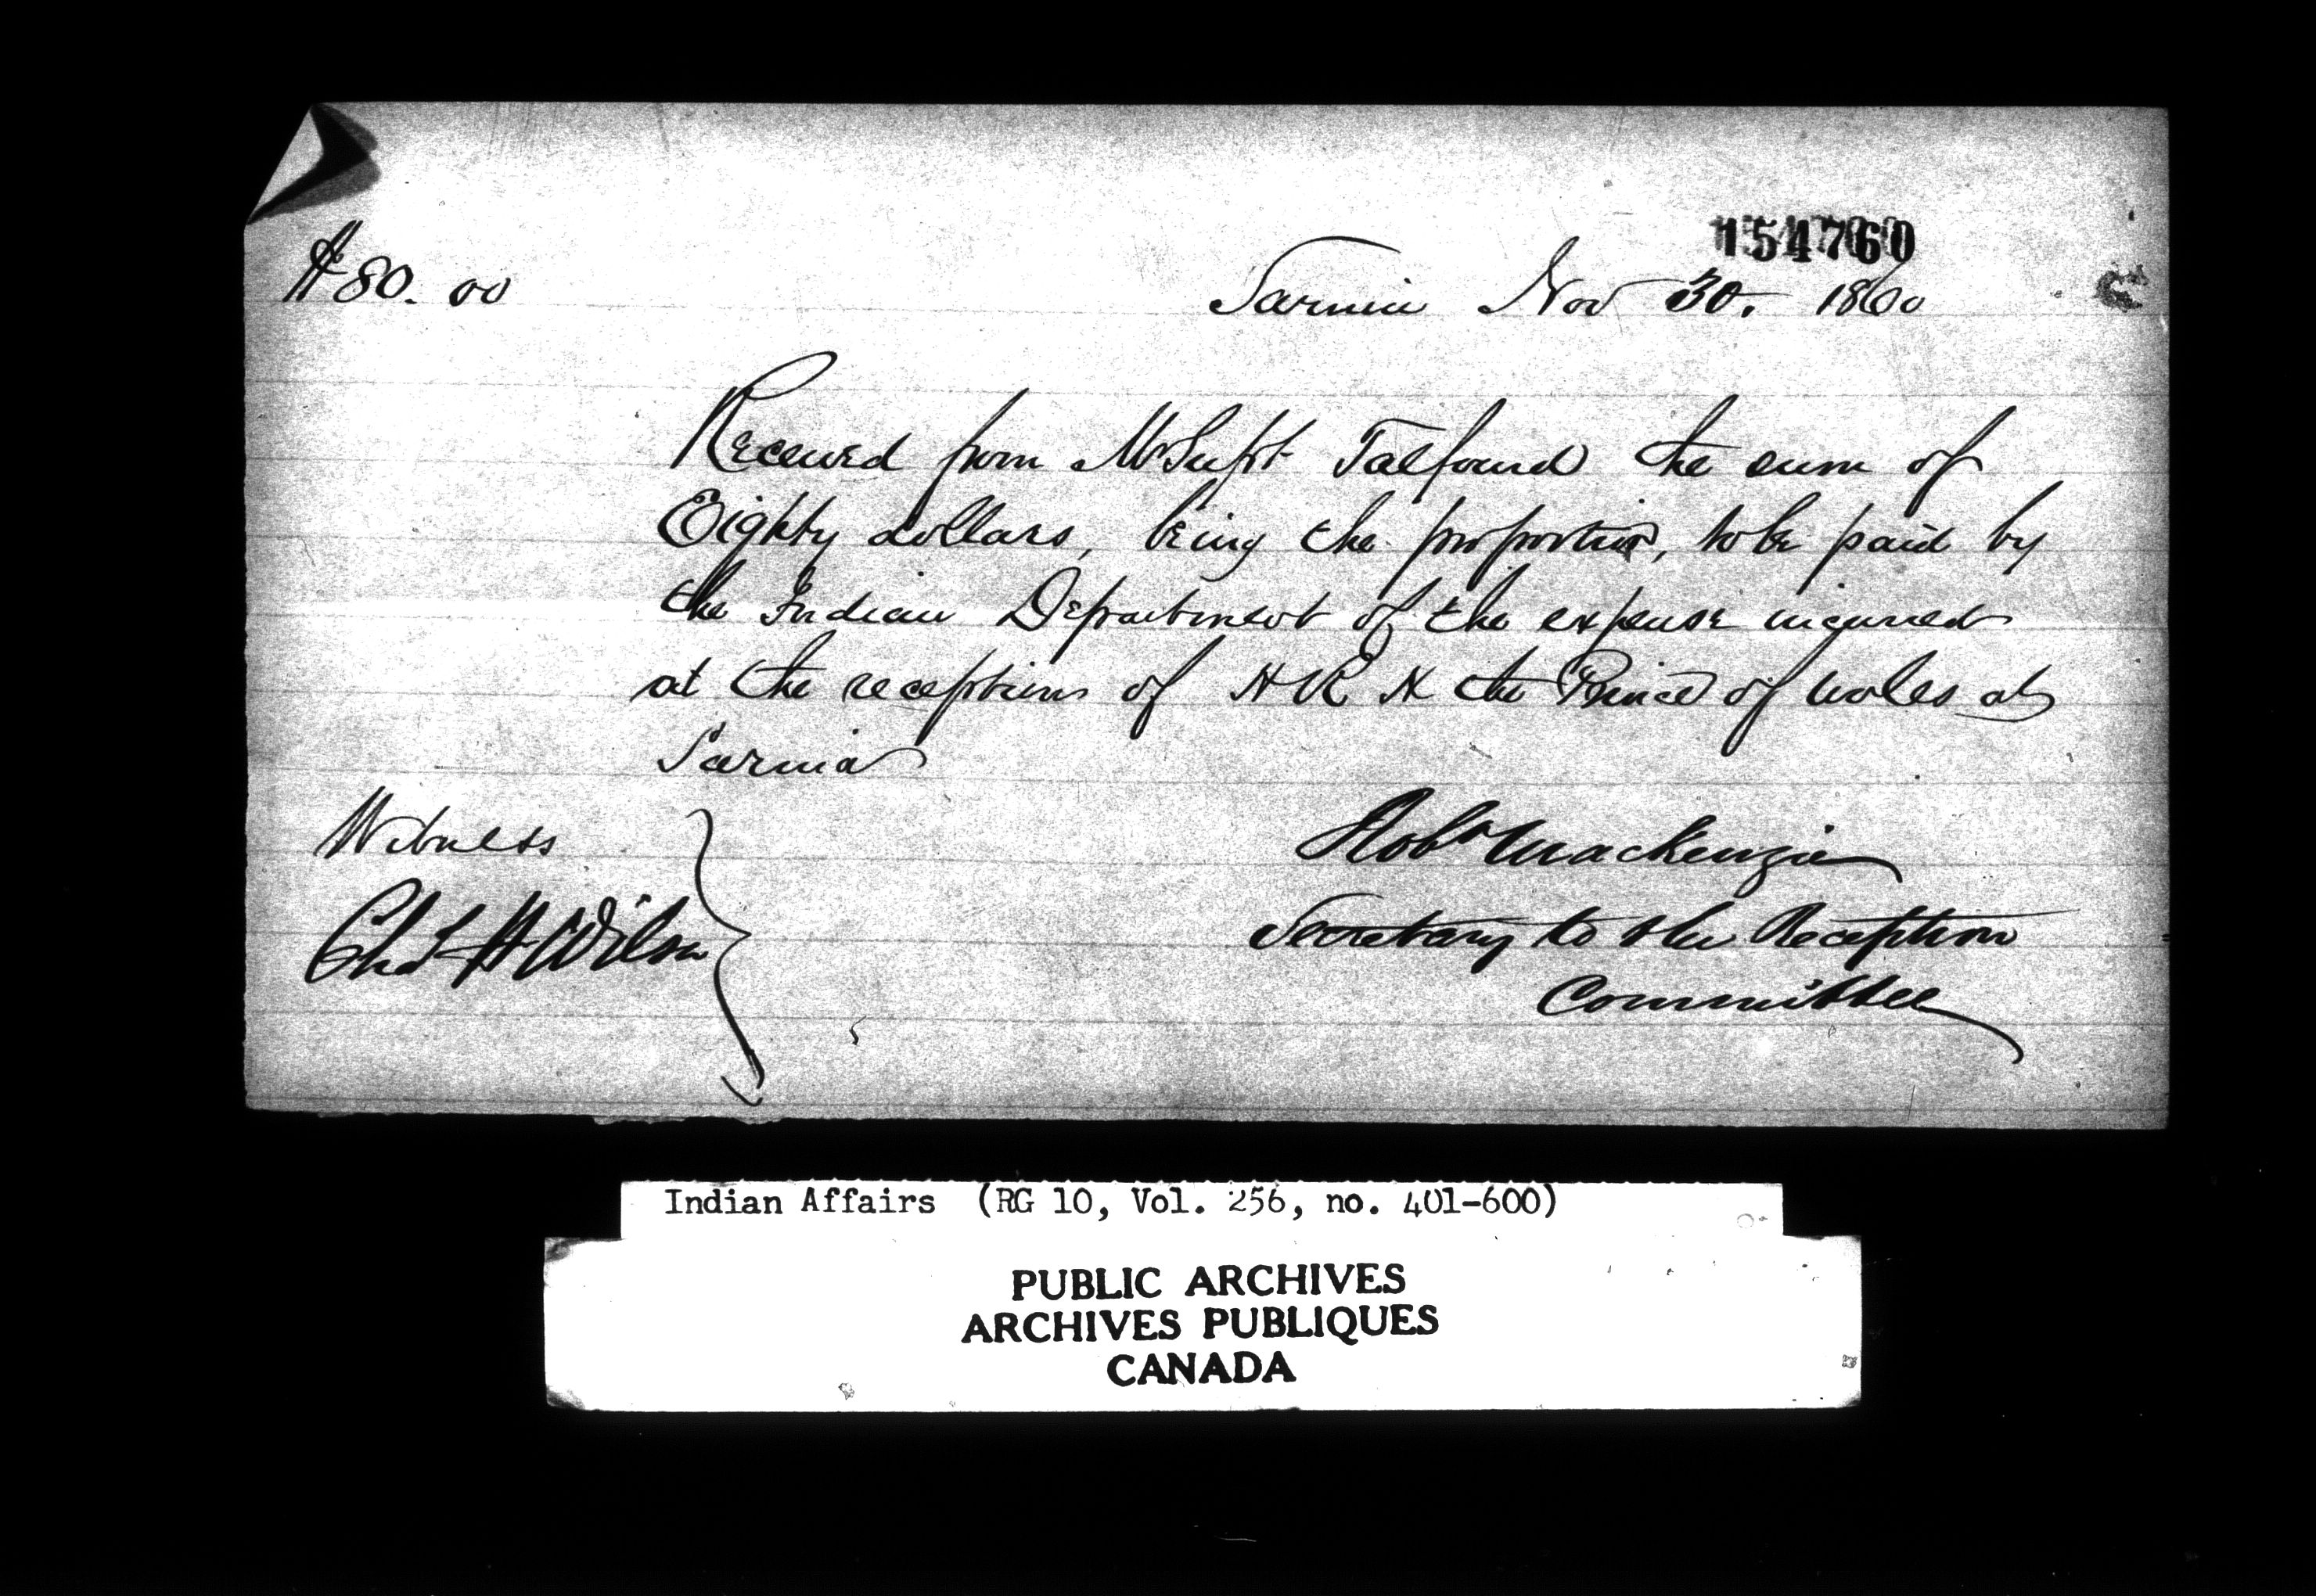 154760
$80.00 Sarnia Nov 30. 1860
Received from Mr Supt Talfourd the sum of
Eighty dollars, being the proportion, to be paid by
the Indian Department of the expense incurred
at the reception of H R H the Prince of Wales at
Sarnia
Witness
Robt Mackenzie
Chas H Wilson
Secretary to the Reception
Committee
Indian Affairs (RG 10, Vol. 256, no. 401-600)
PUBLIC ARCHIVES
ARCHIVES PUBLIQUES
CANADA